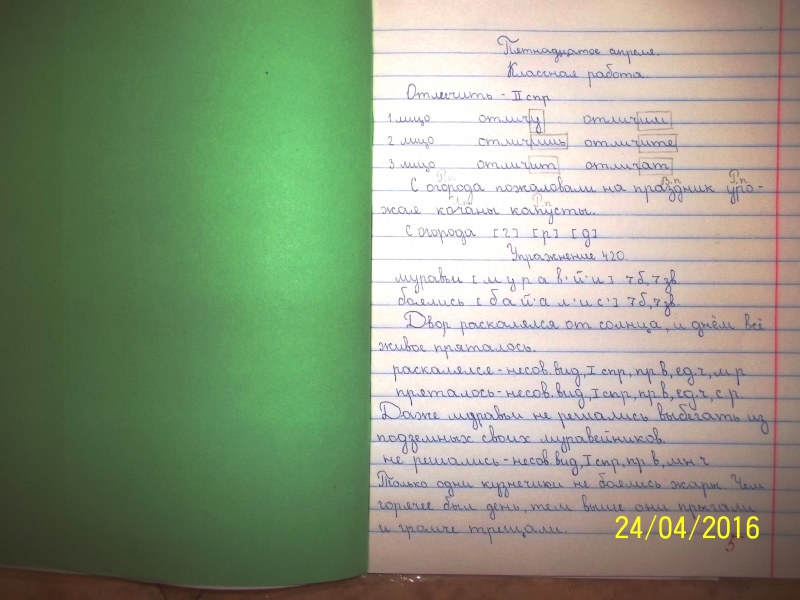 Пятнадцатое апреля.
Классная работа.
Отличить - II спр
1 лицо отличу отличим
2 лицо отличишь отличите
3 лицо отличит отличат
Р.п В.п Р.п
С огорода пожаловали на праздник уро-
И.п Р.п
жая кочаны капусты.
С огорода [г] [р] [д]
Упражнение 420.
муравьи [м у р а в' й' и] 7 б, 7 зв.
боялись [б а й а л' и с'] 7 б, 7 зв.
Двор раскалялся от солнца, и днём всё
живое пряталось.
раскалялся - несов. вид, I спр, пр. в, ед. ч, м. р
пряталось - несов. вид, I спр, пр. в, ед. ч, с. р
Даже муравьи не решались выбегать из
подземных своих муравейников.
не решались - несов. вид, I спр, пр. в, мн. ч
Только одни кузнечики не боялись жары. Чем
горячее был день, тем выше они прыгали
и громче трещали.
24/04/2016
5